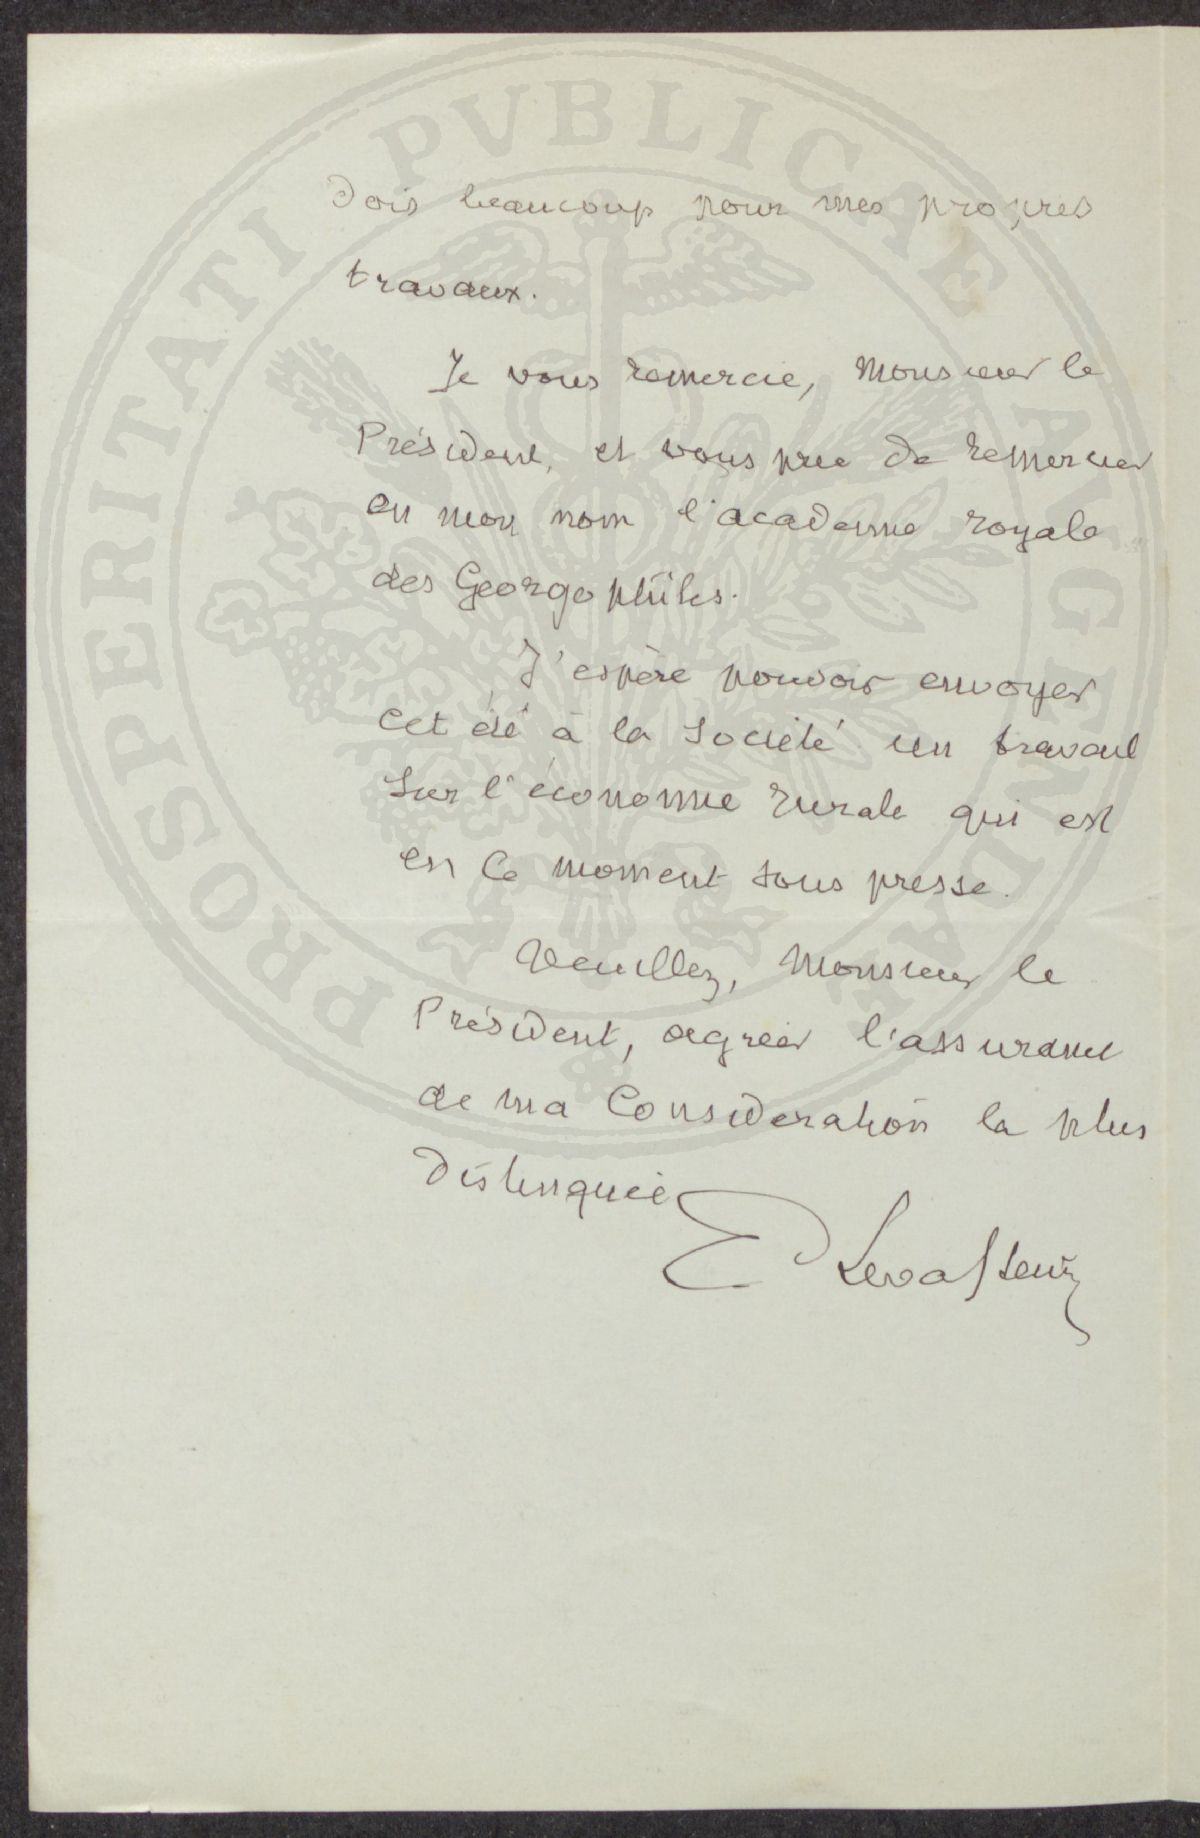 dois beaucoup pour mes propres
travaux.
Je vous remercie, Monsieur le
Président, et vous prie de remercier
en mon nom l'academie royale
des Georgophiles.
J'espère pouvoir envoyer
cet été à la Société un travail
sur l'économie rurale qui est
en ce moment sous presse.
Veuillez, Monsieur le
Président, agréer l'assurance
de ma consideration la plus
distinguée
E Levasseur
PROSPERITATI PVBLICAE AVGENDAE